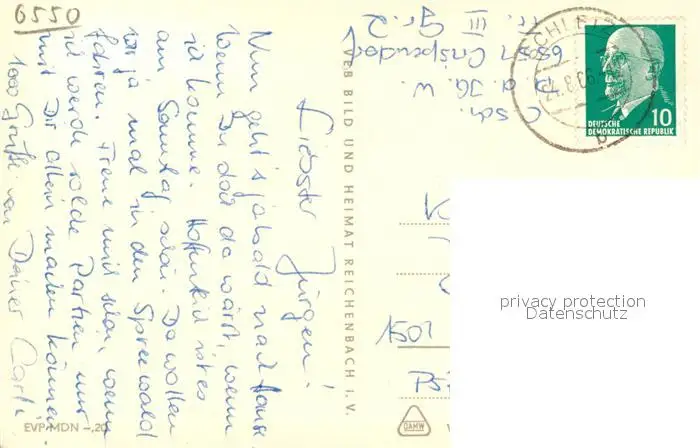 6550
Liebster Jürgen!
Nun geht's ja bald nach Haus.
Wenn Du doch da wärst, wenn
ich komme. Hoffentlich ist es
am Sonntag schön. Da wollen
wir ja mal in den Spreewald
fahren. Freue mich schon, wenn
ich werde solche Partien nur
mit Dir allein machen können.
1000 Grüße von Deiner
VEB BILD UND HEIMAT REICHENBACH I. V.
EVP MDN –,20
III Gr. 2
6551 Crispendorf
SCHLEIZ
b
10
DEUTSCHE
DEMOKRATISCHE REPUBLIK
1501
DAMW
privacy protection
Datenschutz